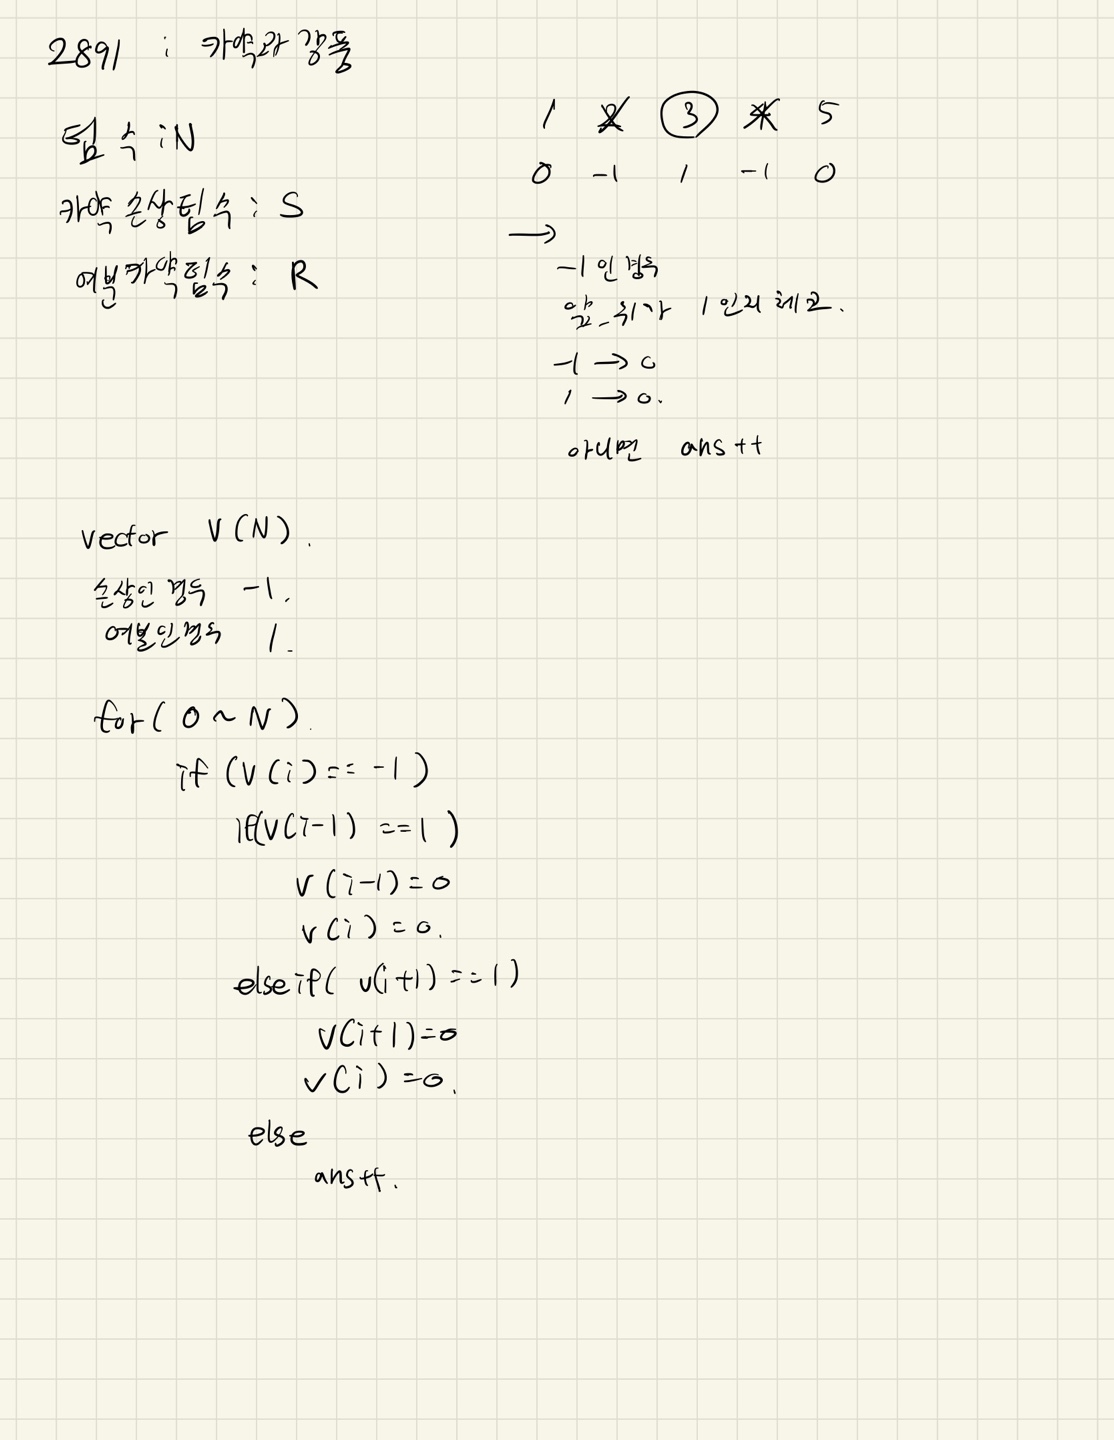 2891 : 카약과 강풍
팀 수 : N
카약 손상팀 수 : S
여분카약팀수 : R
1 2 3 4 5
0 -1 1 -1 0
→
-1 인 경우
앞_뒤가 1 인지 체크.
-1 → 0
1 → 0.
아니면 ans ++
vector V(N).
손상인 경우 -1.
여분인경우 1.
for( 0 ~ N ).
if (V(i) == -1 )
if(V(i-1) ==1 )
v (i-1) = 0
v(i) = 0.
else if( v(i+1) ==1)
v(i+1)=0
v(i) =0.
else
ans++.